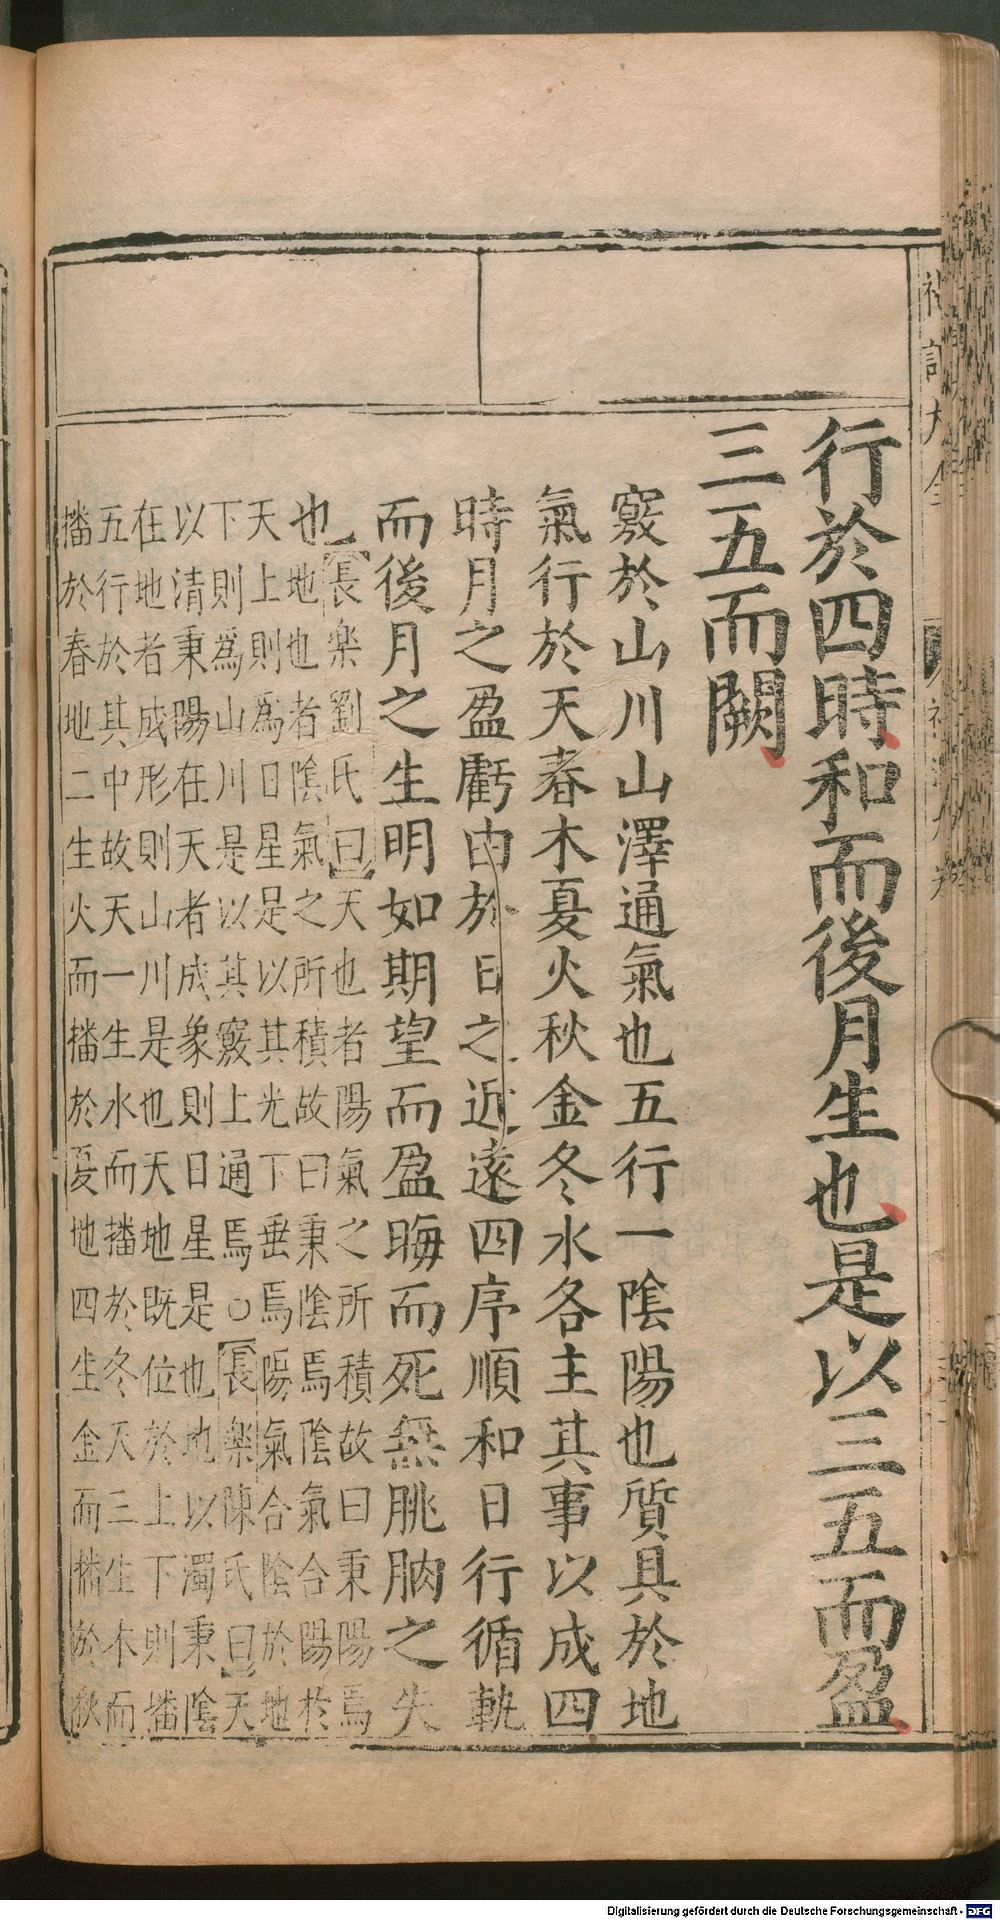 行於四時和而後月生也是以三五而盈
三五而闕
竅於山川山澤通氣也五行一陰陽也質具於地
氣行於天春木夏火秋金冬水各主其事以成四
時月之盈虧由於日之近遠四序順和日行循軌
而後月之生明如期望而盈晦而死無朓朒之失
也
長樂劉氏曰天也者陽氣之所積故曰秉陽焉
地也者陰氣之所積故曰秉陰焉陰氣合陽於
天上則為日星是以其光下垂焉陽氣合陰於地
下則為山川是以其竅上通焉○長樂陳氏曰天
以清秉陽在天者成象則日星是也地以濁秉陰
在地者成形則山川是也天地既位於上下則播
五行於其中故天一生水而播於冬天三生木而
播於春地二生火而播於夏地四生金而播於秋
禮記大全
Digitalisierung gefördert durch die Deutsche Forschungsgemeinschaft - DFG